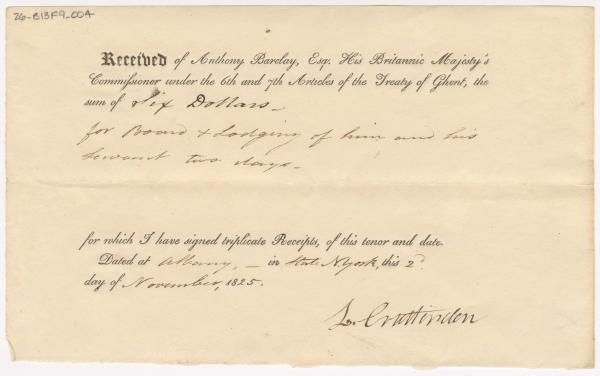 26-B13F9-004
Received of Anthony Barclay, Esq. His Britannic Majesty's
Commissioner under the 6th and 7th Articles of the Treaty of Ghent, the
sum of Six Dollars —
for Board & Lodging of him and his
Servant two days —
for which I have signed triplicate Receipts, of this tenor and date.
Dated at Albany, — in State N.York, this 2d
day of November, 1825.
L. Cruttenden